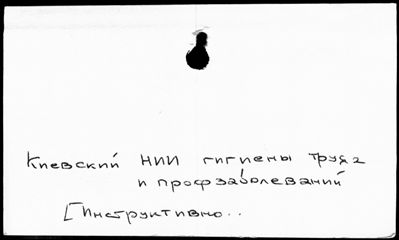 Киевский НИИ гигиены труда
и профзаболеваний
[Инструктивно..